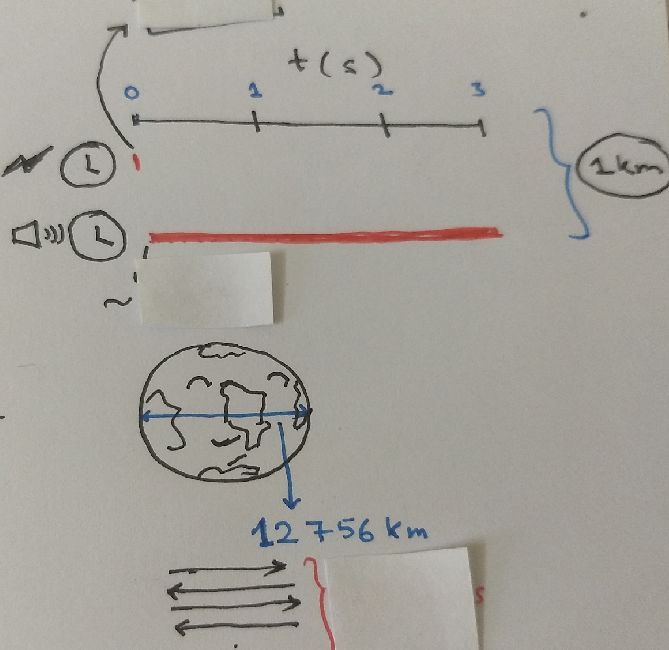 t (s)
0 1 2 3
1 km
~
12 756 km
s